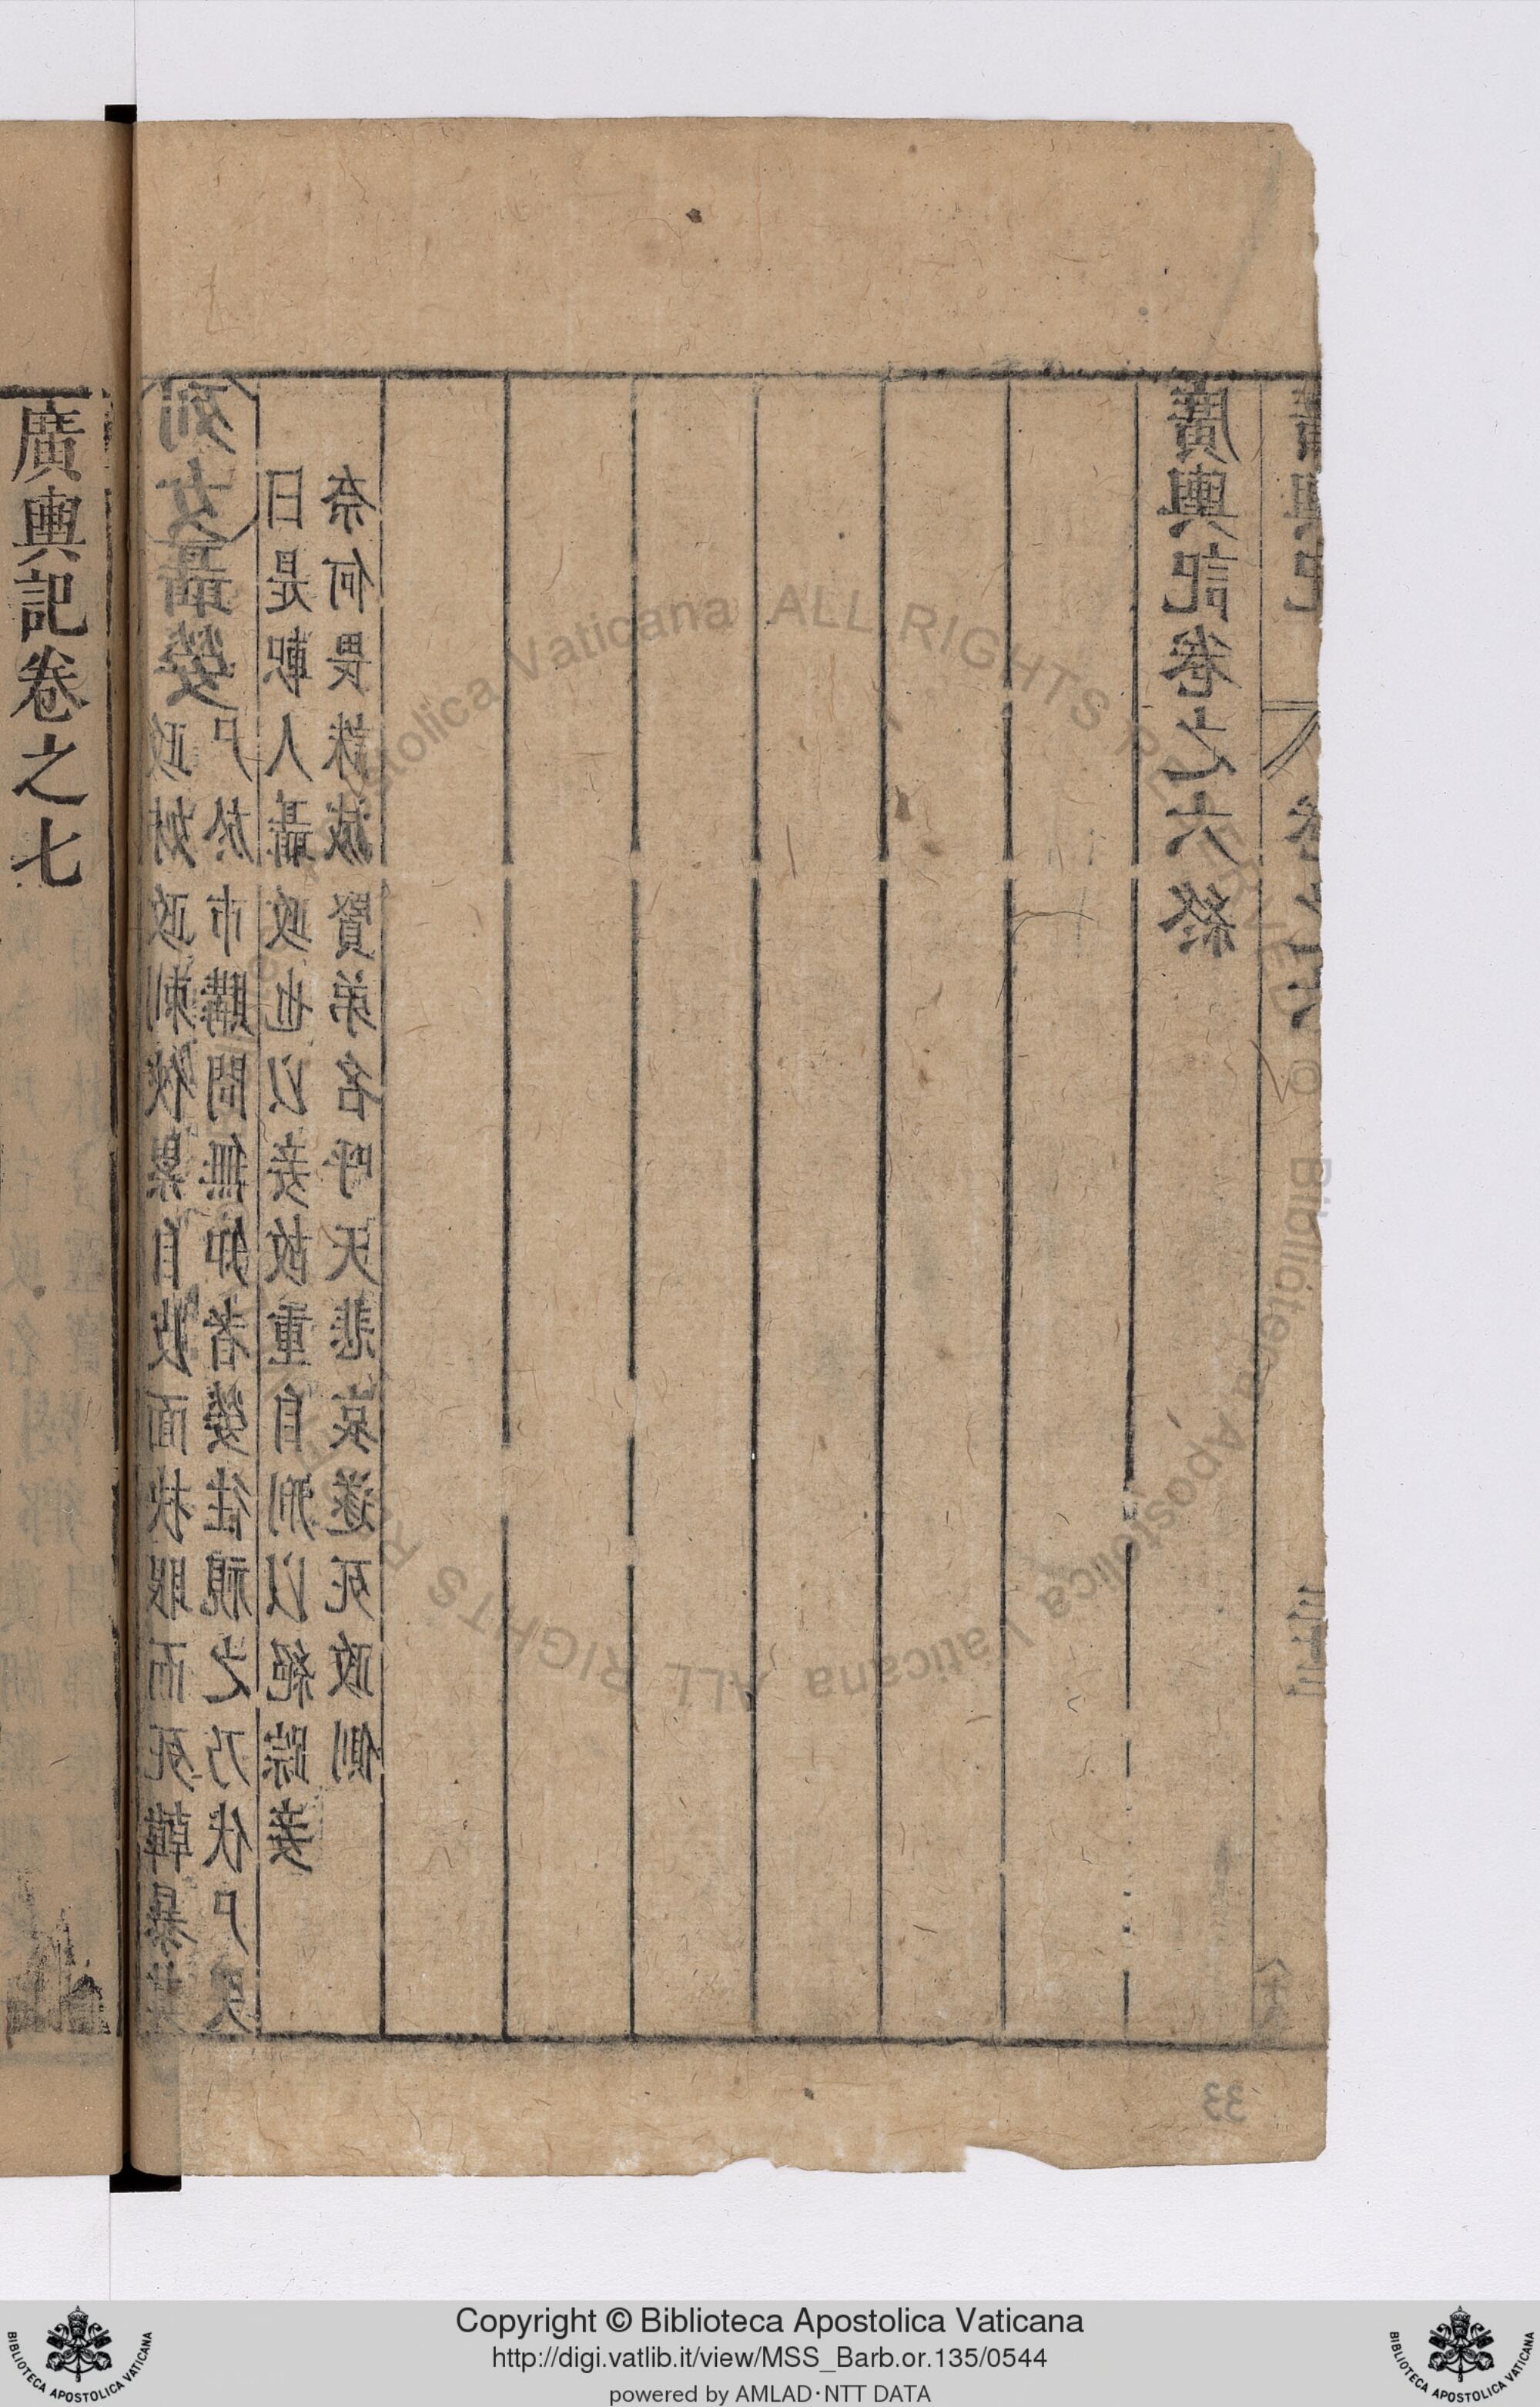 列女聶嫈
政姊政刺俠累自披面抉眼而死韓暴其
尸於市購問無知者嫈往視之乃伏尸哭
曰是軹人聶政也以妾故重自刑以絕踪妾
奈何畏誅滅賢弟名呼天悲哀遂死政側
廣輿記卷之六終
廣輿記 卷之六
33
廣輿記卷之七
Biblioteca Apostolica Vaticana ALL RIGHTS RESERVED © Biblioteca Apostolica Vaticana ALL RIGHTS RESERVED
Copyright © Biblioteca Apostolica Vaticana
http://digi.vatlib.it/view/MSS_Barb.or.135/0544
powered by AMLAD·NTT DATA
BIBLIOTECA APOSTOLICA VATICANA
BIBLIOTECA APOSTOLICA VATICANA